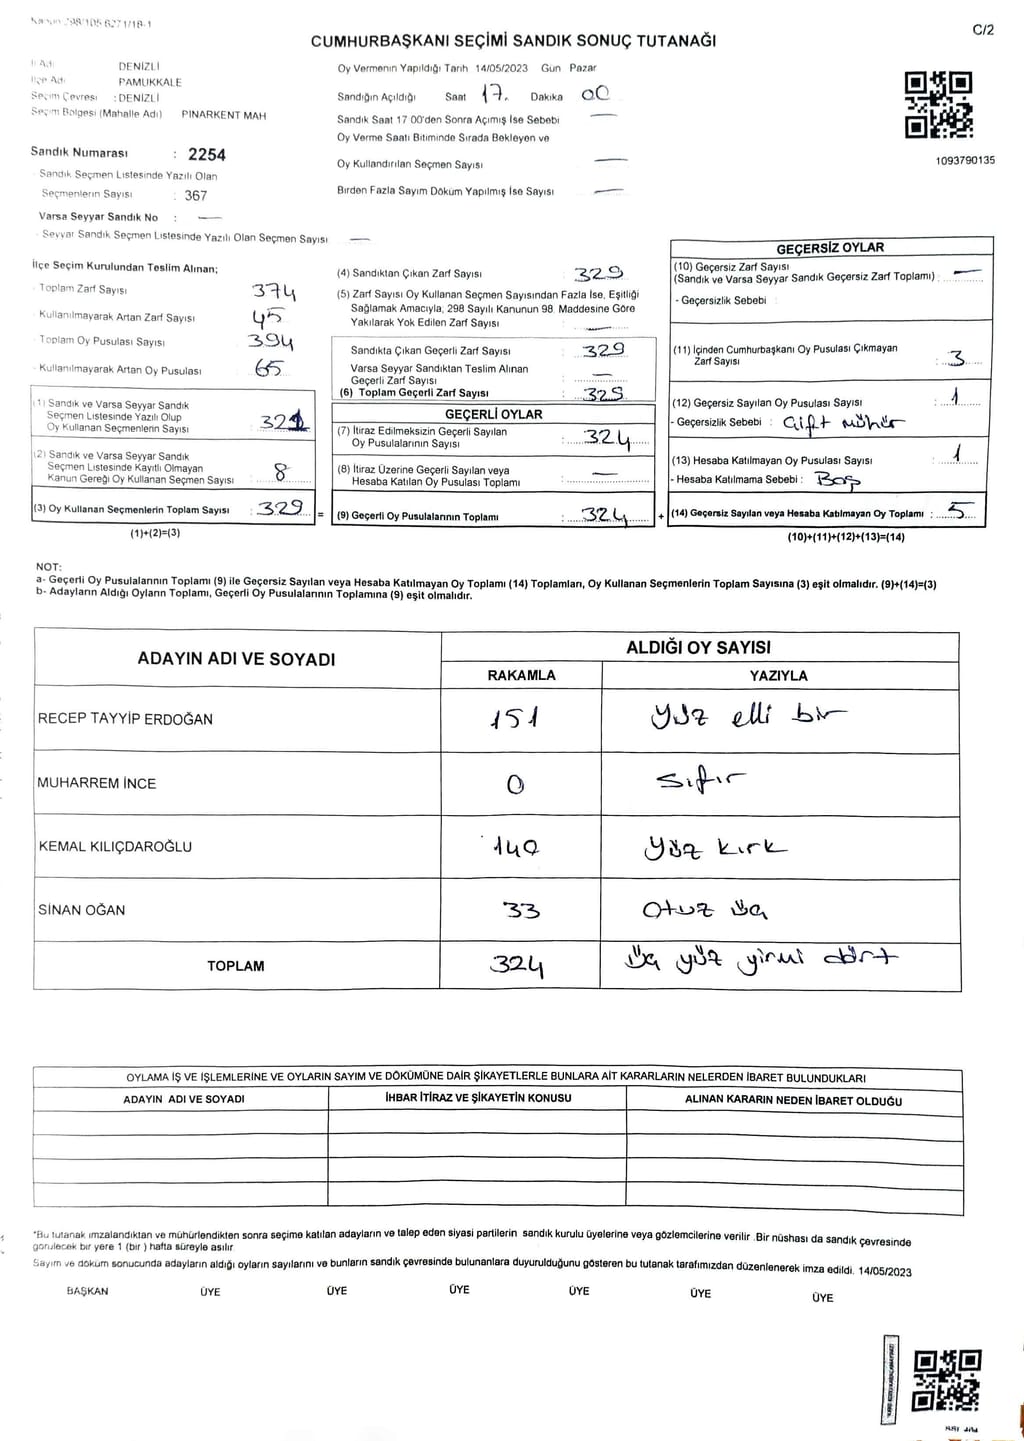 C/2
CUMHURBAŞKANI SEÇİMİ SANDIK SONUÇ TUTANAĞI
İl Adı DENİZLİ
İlçe Adı PAMUKKALE
Seçim Çevresi : DENİZLİ
Seçim Bölgesi (Mahalle Adı) PINARKENT MAH
Sandık Numarası : 2254
Sandık Seçmen Listesinde Yazılı Olan
Seçmenlerin Sayısı : 367
Varsa Seyyar Sandık No : —
- Seyyar Sandık Seçmen Listesinde Yazılı Olan Seçmen Sayısı —
Oy Vermenin Yapıldığı Tarih 14/05/2023 Gün Pazar
Sandığın Açıldığı Saat 17. Dakika 00
Sandık Saat 17 00'den Sonra Açımış İse Sebebi —
Oy Verme Saati Bitiminde Sırada Bekleyen ve
Oy Kullandırılan Seçmen Sayısı —
Birden Fazla Sayım Döküm Yapılmış İse Sayısı —
1093790135
İlçe Seçim Kurulundan Teslim Alınan;
- Toplam Zarf Sayısı 374
- Kullanılmayarak Artan Zarf Sayısı 45
- Toplam Oy Pusulası Sayısı 394
- Kullanılmayarak Artan Oy Pusulası 65
(1) Sandık ve Varsa Seyyar Sandık
Seçmen Listesinde Yazılı Olup
Oy Kullanan Seçmenlerin Sayısı : 321
(2) Sandık ve Varsa Seyyar Sandık
Seçmen Listesinde Kayıtlı Olmayan
Kanun Gereği Oy Kullanan Seçmen Sayısı : 8
(3) Oy Kullanan Seçmenlerin Toplam Sayısı : 329 =
(1)+(2)=(3)
(4) Sandıktan Çıkan Zarf Sayısı : 329
(5) Zarf Sayısı Oy Kullanan Seçmen Sayısından Fazla İse, Eşitliği
Sağlamak Amacıyla, 298 Sayılı Kanunun 98. Maddesine Göre
Yakılarak Yok Edilen Zarf Sayısı : —
Sandıkta Çıkan Geçerli Zarf Sayısı : 329
Varsa Seyyar Sandıktan Teslim Alınan
Geçerli Zarf Sayısı : —
(6) Toplam Geçerli Zarf Sayısı : 329
GEÇERLİ OYLAR
(7) İtiraz Edilmeksizin Geçerli Sayılan
Oy Pusulalarının Sayısı : 324
(8) İtiraz Üzerine Geçerli Sayılan veya
Hesaba Katılan Oy Pusulası Toplamı : —
(9) Geçerli Oy Pusulalarının Toplamı : 324 +
GEÇERSİZ OYLAR
(10) Geçersiz Zarf Sayısı
(Sandık ve Varsa Seyyar Sandık Geçersiz Zarf Toplamı) : —
- Geçersizlik Sebebi :
(11) İçinden Cumhurbaşkanı Oy Pusulası Çıkmayan
Zarf Sayısı : 3
(12) Geçersiz Sayılan Oy Pusulası Sayısı : 1
- Geçersizlik Sebebi : Çift mühür
(13) Hesaba Katılmayan Oy Pusulası Sayısı : 1
- Hesaba Katılmama Sebebi : Boş
(14) Geçersiz Sayılan veya Hesaba Katılmayan Oy Toplamı : 5
(10)+(11)+(12)+(13)=(14)
NOT:
a- Geçerli Oy Pusulalarının Toplamı (9) ile Geçersiz Sayılan veya Hesaba Katılmayan Oy Toplamı (14) Toplamları, Oy Kullanan Seçmenlerin Toplam Sayısına (3) eşit olmalıdır. (9)+(14)=(3)
b- Adayların Aldığı Oyların Toplamı, Geçerli Oy Pusulalarının Toplamına (9) eşit olmalıdır.
ADAYIN ADI VE SOYADI ALDIĞI OY SAYISI
RAKAMLA YAZIYLA
RECEP TAYYİP ERDOĞAN 151 yüz elli bir
MUHARREM İNCE 0 sıfır
KEMAL KILIÇDAROĞLU 140 yüz kırk
SİNAN OĞAN 33 otuz üç
TOPLAM 324 üç yüz yirmi dört
OYLAMA İŞ VE İŞLEMLERİNE VE OYLARIN SAYIM VE DÖKÜMÜNE DAİR ŞİKAYETLERLE BUNLARA AİT KARARLARIN NELERDEN İBARET BULUNDUKLARI
ADAYIN ADI VE SOYADI İHBAR İTİRAZ VE ŞİKAYETİN KONUSU ALINAN KARARIN NEDEN İBARET OLDUĞU
*Bu tutanak imzalandıktan ve mühürlendikten sonra seçime katılan adayların ve talep eden siyasi partilerin sandık kurulu üyelerine veya gözlemcilerine verilir .Bir nüshası da sandık çevresinde
görülecek bir yere 1 (bir ) hafta süreyle asılır
Sayım ve döküm sonucunda adayların aldığı oyların sayılarını ve bunların sandık çevresinde bulunanlara duyurulduğunu gösteren bu tutanak tarafımızdan düzenlenerek imza edildi. 14/05/2023
BAŞKAN ÜYE ÜYE ÜYE ÜYE ÜYE ÜYE